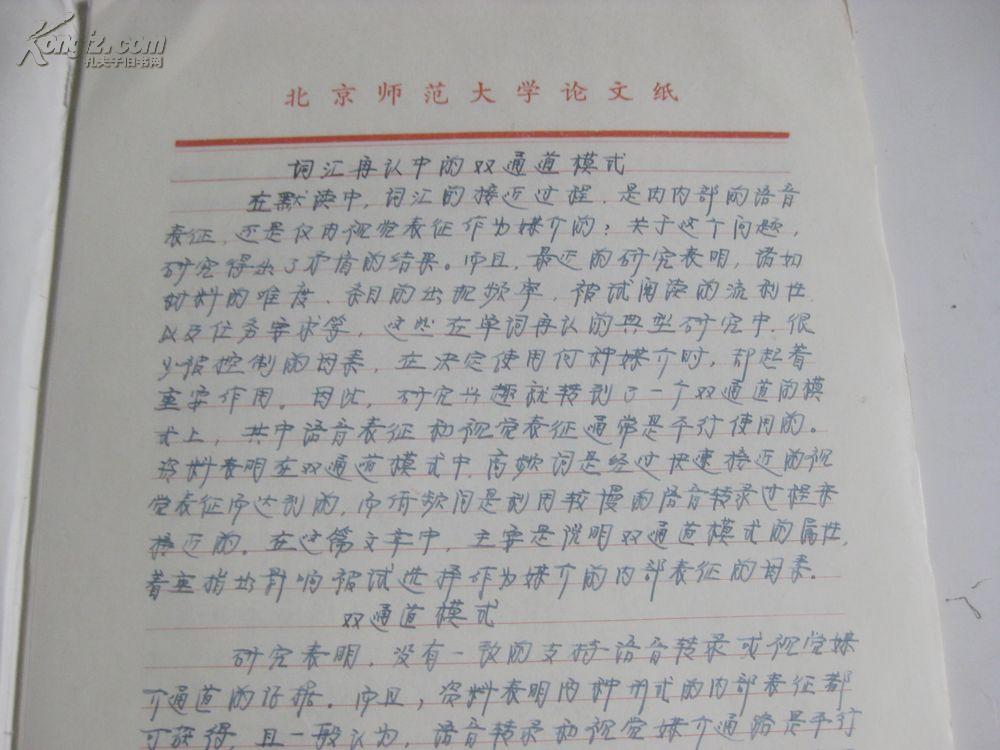 Kongfz.com
孔夫子旧书网
北京师范大学论文纸
词汇再认中的双通道模式
在默读中,词汇的接近过程,是内内部的语音
表征,还是仅内视觉表征作为媒介的?关于这个问题,
研究得出了矛盾的结果。而且,最近的研究表明,诸如
材料的难度、条目的出现频率,被试阅读的流利性
以及任务要求等,这些在单词再认的典型研究中,很
少被控制的因素,在决定使用何种媒介时,却起着
重要作用。因此,研究兴趣就转到了一个双通道的模
式上,其中语音表征和视觉表征通常是平行使用的。
资料表明在双通道模式中,高频词是经过快速接近的视
觉表征而达到的,而低频词是利用较慢的语音转录过程来
接近的。在这篇文章中,主要是说明双通道模式的属性,
着重指出影响被试选择作为媒介的内部表征的因素。
双通道模式
研究表明,没有一致的支持语音转录或视觉媒
介通道的证据。而且,资料表明两种形式的内部表征都
可获得,且一般认为,语音转录和视觉媒介通路是平行